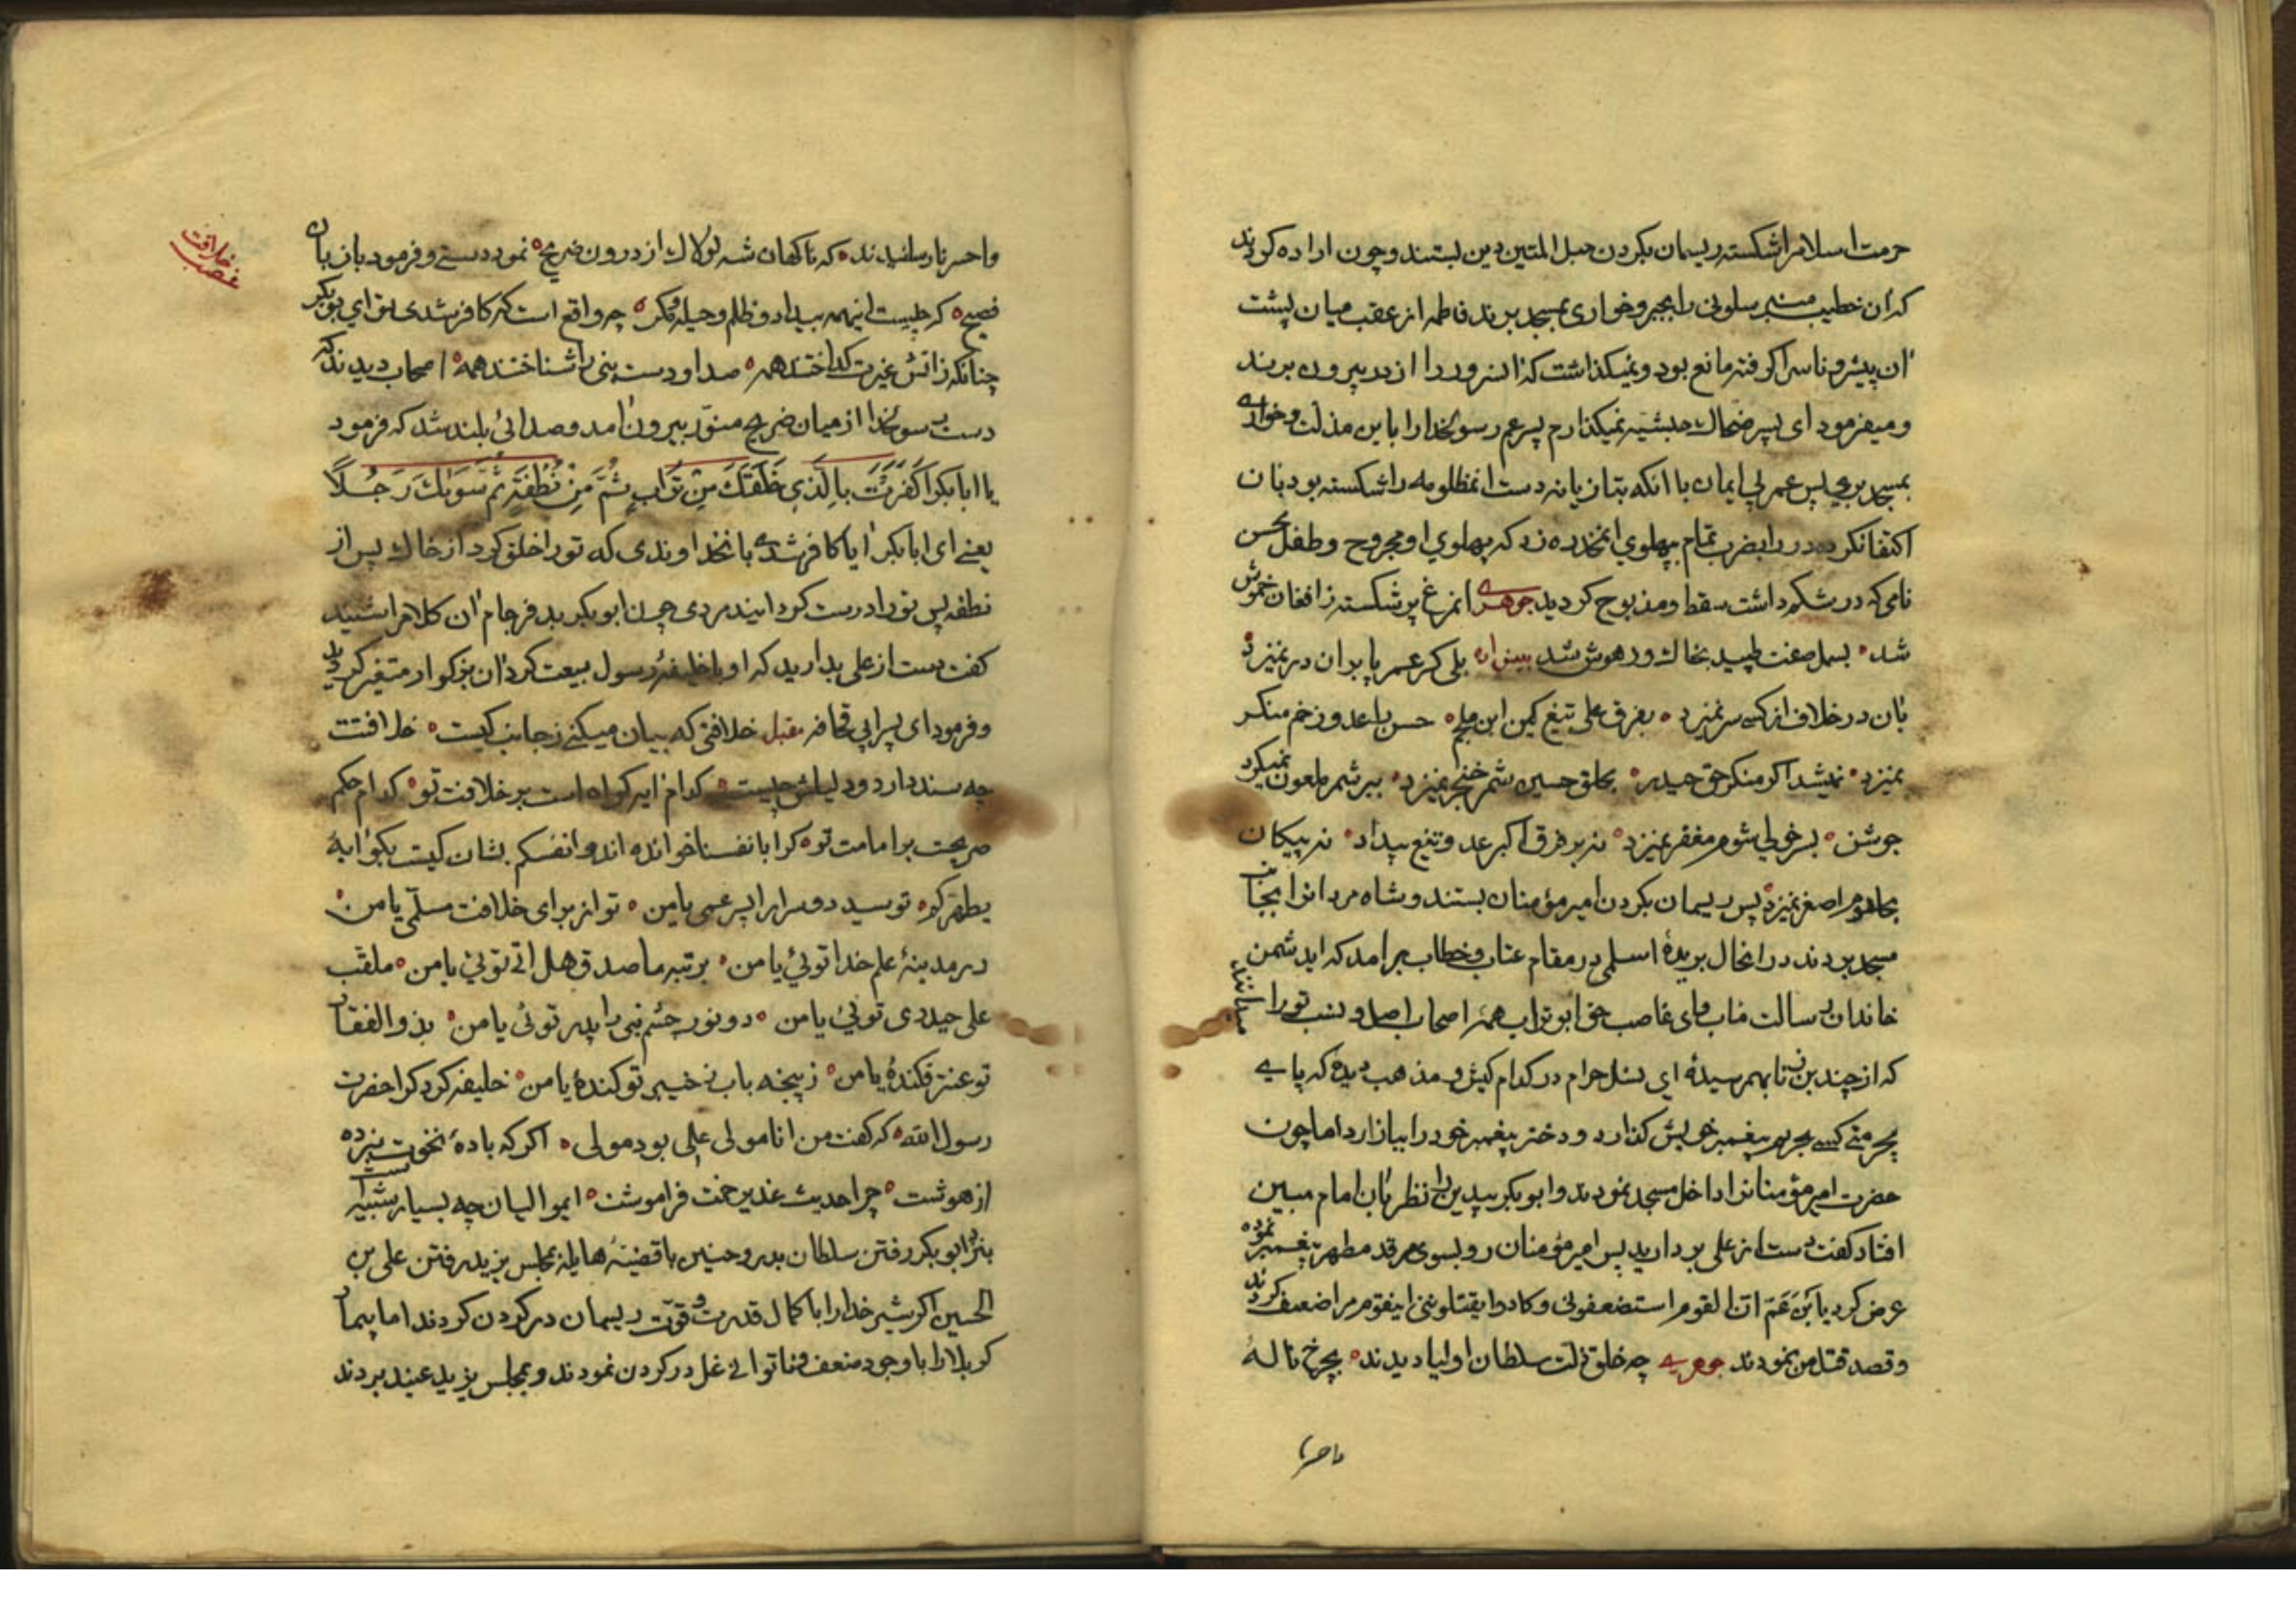 حرمت اسلام را شکسته ریسمان بکردن حبل المتین دین بستند و چون اراده کردند
که آن خطیب منبر سلونی را بجبر و خواری بمسجد برند فاطمه از عقب میان پشت
آن پیشرو ناس را کرفته مانع بود و نمیکذاشت که آن سرور را از در بیرون برند
و میفرمود ای پسر ضحاک حبشیه نمیکذارم پسر عم رسولخدا را باین مذلت و خواری
بمسجد بری پس عمر بی ایمان با آنکه بتازیانه دست آنمظلومه را شکسته بود بآن
اکتفا نکرده در را بضرب تمام بپهلوی آنمخدره زد که پهلوی او مجروح و طفل محسن
نامی که در شکم داشت سقط و مذبوح کردید جوهری آنمرغ پر شکسته ز افغان خموش
شد بسمل صفت طپید بخاک و ز هوش شد بلی کر عمر پا بر آن در نمیزد
بآن در خلاف از کسی سر نمیزد بفرق علی تیغ کین ابن ملجم حسن را عدو زخم منکر
نمیزد نمیشد اکر منکر حق حیدر بحلق حسین شمر خنجر نمیزد ببر شمر ملعون نمیکرد
جوشن بسر خولی شوم مغفر نمیزد نه بر فرق اکبر عدو تیغ بیداد نه پیکان
بحلقوم اصغر نمیزد پس ریسمان بکردن امیر مؤمنان بستند و شاه مردانرا بجانب
مسجد بردند در آنحال بریدهٔ اسلمی در مقام عتاب و خطاب برآمد که ای دشمن
خاندان رسالت مآب و ای غاصب حق ابوتراب همهٔ اصحاب اصل و نسب تو را میدانند
که از چندین زنا بهم رسیدهٔ ای نسل حرام در کدام کیش و مذهب دیدهٔ که پای
بیحرمتی کسی بحریم پیغمبر خویش کذارد و دختر پیغمبر خود را بیازارد اما چون
حضرت امیر مؤمنانرا داخل مسجد نمودند و ابوبکر بیدین را نظر بآن امام مبین
افتاد کفت دست از علی بردارید پس امیر مؤمنان رو بسوی مرقد مطهر پیغمبر نموده
عرض کرد یا بن عم ان القوم استضعفونی و کادوا یقتلوننی اینقوم مرا ضعیف کردند
و قصد قتل من نمودند جوهری چه خلق ذلت سلطان اولیا دیدند بچرخ نالهٔ
واحسرتا
واحسرتا رسانیدند که ناکهان شه لولاک از درون ضریح نمود دستی و فرمود بازبان
فصیح که چیست اینهمه بیداد و ظلم و حیله و مکر چه واقع است که کافر شدی تو ای بوبکر
چنانکه ز آتش غیرت کداختند همه صدا و دست نبی را شناختند همه اصحاب دیدند که
دست رسولخدا از میان ضریح منور بیرون آمد و صدائی بلند شد که فرمود
یا ابابکر اکفرت بالذی خلقک من تراب ثم من نطفة ثم سواک رجلاً
یعنی ای ابابکر آیا کافر شدی بآنخداوندی که تو را خلق کرد از خاک پس از
نطفه پس تو را درست کردانید مردی چون ابوبکر بد فرجام آن کلام را شنید
کفت دست از علی بدارید که او با خلیفهٔ رسول بیعت کرد آن بزرکوار متغیر کردید
و فرمود ای پسر ابی قحافه مقبل خلافتی که بیان میکنی ز جانب کیست خلافتت
چه سند دارد و دلیلش چیست کدام آیه کواه است بر خلافت تو کدام حکم
صریحست بر امامت تو کرا بانفسنا خوانده اند و انفسکم بشان کیست بکو آیهٔ
یطهرکم تو سید دو سرا را پسر عمی یا من تو از برای خلافت مسلمی یا من
در مدینهٔ علم خدا توئی یا من برتبه ما صدق هل اتی توئی یا من ملقب
علی حیدری توئی یا من دو نور چشم نبی را پدر توئی یا من بذوالفقار
تو عنتر فکندهٔ یا من ز پنجه باب ز خیبر تو کندهٔ یا من خلیفه کرد کرا حضرت
رسول الله که کفت من انا مولی علی بود مولی اکر که بادهٔ نخوت نبرده
از هوشت چرا حدیث غدیر خمت فراموشت ایموالیان چه بسیار شبیه است
بنزد ابوبکر رفتن سلطان بدر و حنین با قضیهٔ هایلهٔ مجلس یزید رفتن علی بن
الحسین اکر شیر خدا را با کمال قدرت و قوت ریسمان در کردن کردند اما بیمار
کربلا را با وجود ضعف و ناتوانی غل در کردن نمودند و بمجلس یزید عنید بردند
غصب خلافت